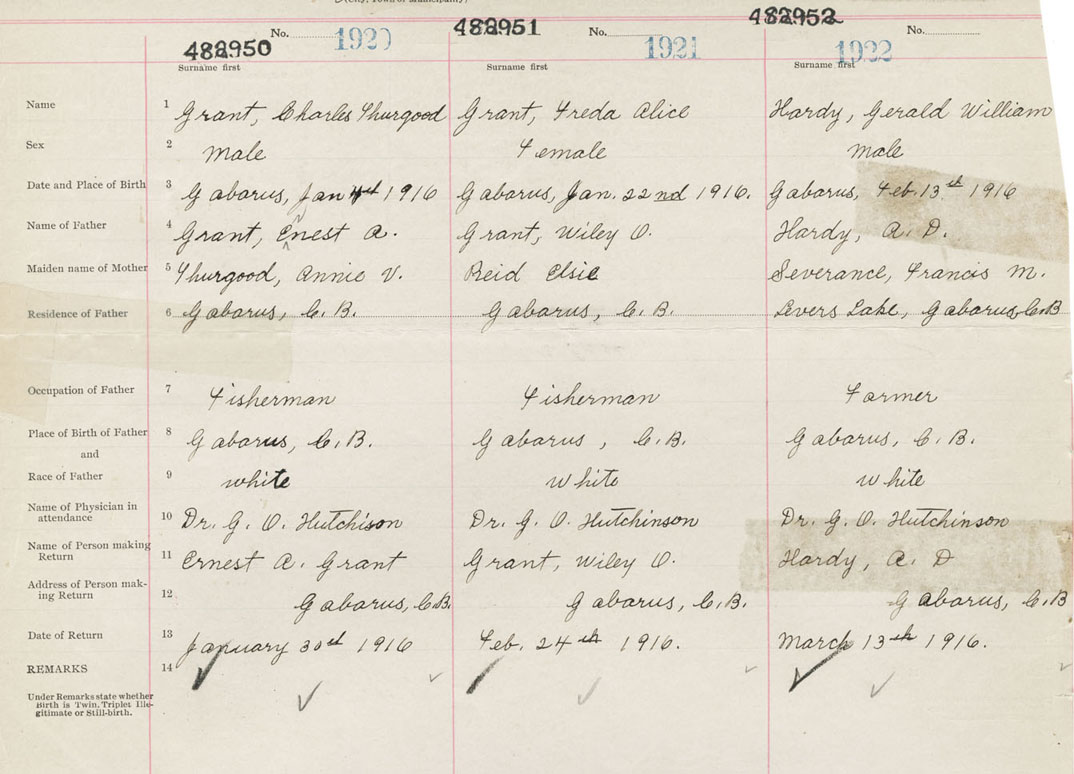 (City, Town or Municipality)
482950 No. 1920 482951 No. 1921 482952 No. 1922
Surname first Surname first Surname first
Name 1 Grant, Charles Thurgood Grant, Freda Alice Hardy, Gerald William
Sex 2 Male Female Male
Date and Place of Birth 3 Gabarus, Jan 1916 Gabarus, Jan. 22nd 1916. Gabarus, Feb. 13th 1916
Name of Father 4 Grant, Ernest A. Grant, Wiley O. Hardy, A. D.
Maiden name of Mother 5 Thurgood, Annie V. Reid Elsie Severance, Francis M.
Residence of Father 6 Gabarus, C.B. Gabarus, C.B. Levers Lake, Gabarus, C.B
Occupation of Father 7 Fisherman Fisherman Farmer
Place of Birth of Father 8 Gabarus, C.B. Gabarus, C.B. Gabarus, C.B.
and
Race of Father 9 white White White
Name of Physician in
attendance 10 Dr. G. O. Hutchison Dr. G. O. Hutchinson Dr. G. O. Hutchinson
Name of Person making
Return 11 Ernest A. Grant Grant, Wiley O. Hardy, A. D
Address of Person mak-
ing Return 12 Gabarus, C.B. Gabarus, C.B. Gabarus, C.B
Date of Return 13 January 30th 1916 Feb. 24th 1916. March 13th 1916.
REMARKS 14
Under Remarks state whether
Birth is Twin, Triplet Ille-
gitimate or Still-birth.